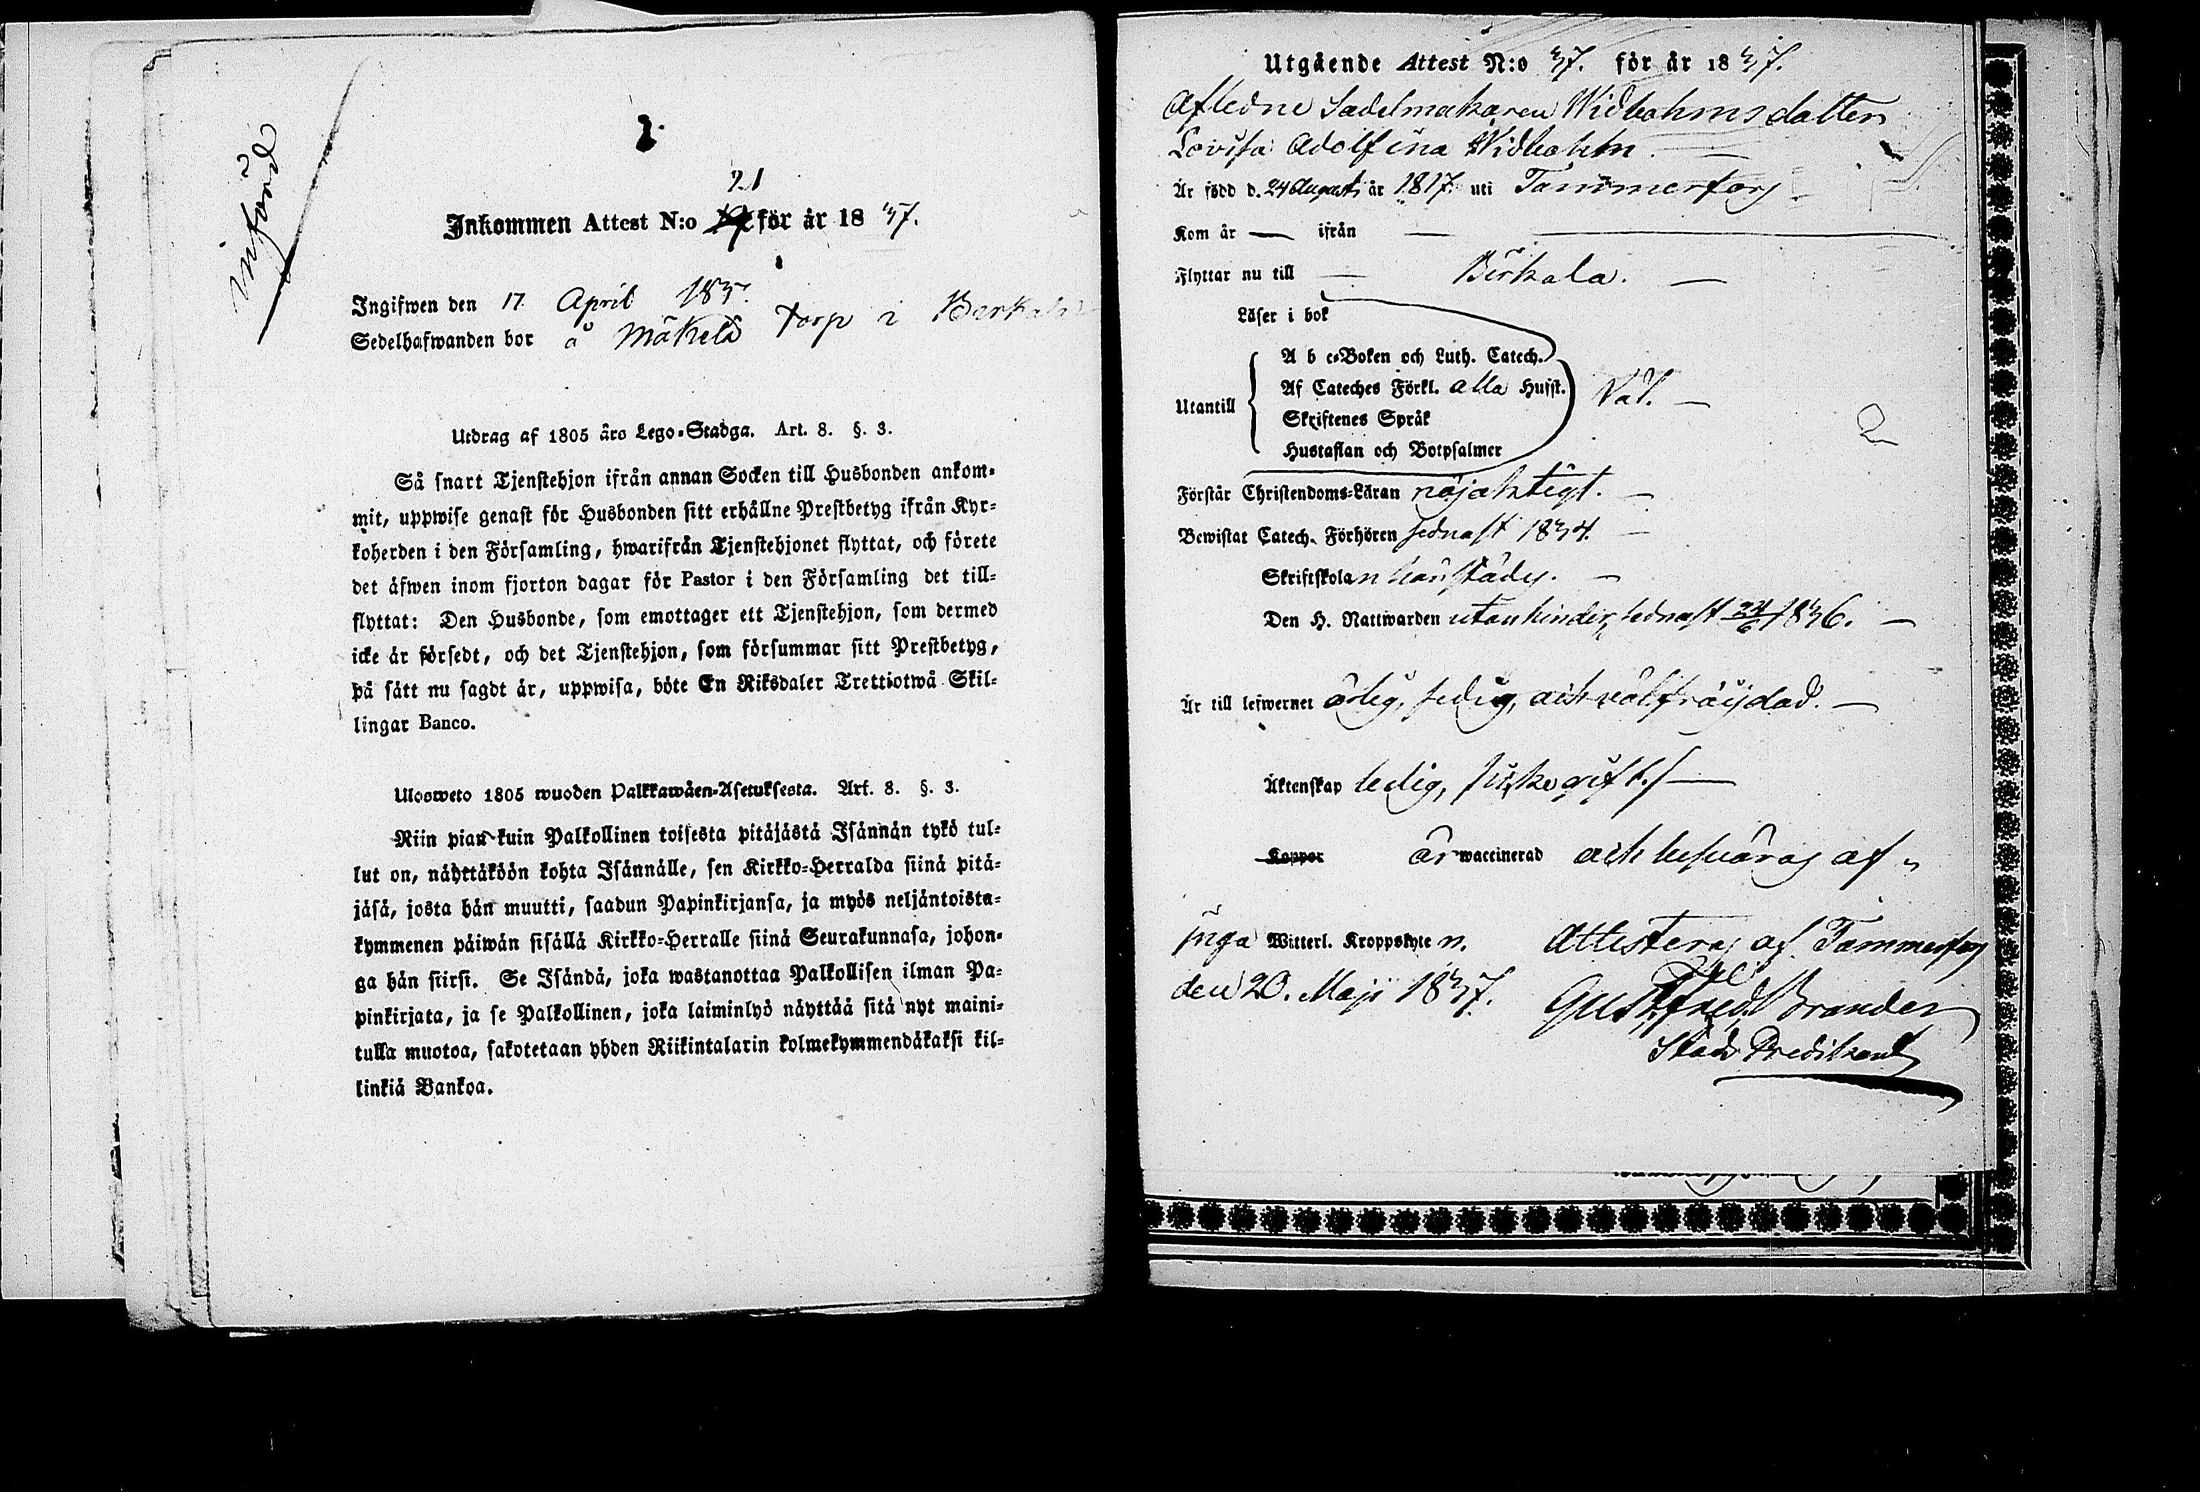 införd
1
21
Inkommen Attest N:o 19 för år 1837.
Ingifwen den 17 April 1837.
Sedelhafwanden bor å Mäkelä torp i Berkala
Utdrag af 1805 års Lego-Stadga. Art. 8. §. 3.
Så snart Tjenstehjon ifrån annan Socken till Husbonden ankom-
mit, uppwise genast för Husbonden sitt erhållne Prestbetyg ifrån Kyr-
koherden i den Församling, hwarifrån Tjenstehjonet flyttat, och förete
det äfwen inom fjorton dagar för Pastor i den Församling det till-
flyttat: Den Husbonde, som emottager ett Tjenstehjon, som dermed
icke är försedt, och det Tjenstehjon, som försummar sitt Prestbetyg,
på sätt nu sagdt är, uppwisa, böte En Riksdaler Trettiotwå Skil-
lingar Banco.
Ulosweto 1805 wuoden Palkkawäen-Asetuksesta. Art. 8. §. 3.
Niin pian kuin Palkollinen toisesta pitäjästä Isännän tykö tul-
lut on, näyttäköön kohta Isännälle, sen Kirkko-Herralda siinä pitä-
jäsä, josta hän muutti, saadun Papinkirjansa, ja myös neljäntoista-
kymmenen päiwän sisällä Kirkko-Herralle siinä Seurakunnasa, johon-
ga hän siirsi. Se Isändä, joka wastanottaa Palkollisen ilman Pa-
pinkirjata, ja se Palkollinen, joka laiminlyö näyttää sitä nyt maini-
tulla muotoa, sakotetaan yhden Riikintalarin kolmekymmendäkaksi kil-
linkiä Bankoa.
Utgående Attest N:o 37. för år 1837.
Afledne Sadelmakaren Widbohms dotter
Lovisa Adolfina Widbohm.
Är född d. 24 Augusti år 1817 uti Tammerfors
Kom år — ifrån —
Flyttar nu till Birkala.
Läser i bok
A b c-Boken och Luth. Catech.
Af Cateches Förkl. alla Husst.
Utantill
Skriftenes Språk
Hustaflan och Botpsalmer
Väl.
Förstår Christendoms-Läran nöjaktigt.
Bewistat Catech. Förhören sednast 1834.
Skriftskolan
Den H. Nattwarden utan hinder, sednast 24/6 1836.
Är till lefwernet ärlig, sedig, och välfräjdad.
Äktenskap ledig, ogift.
Koppor är waccinerad och besväras af
inga Witterl. Kroppslyten. Attesteras af Tammerfors
den 20. Maji 1837. Gust. Fried. Brander
Stads Predikant